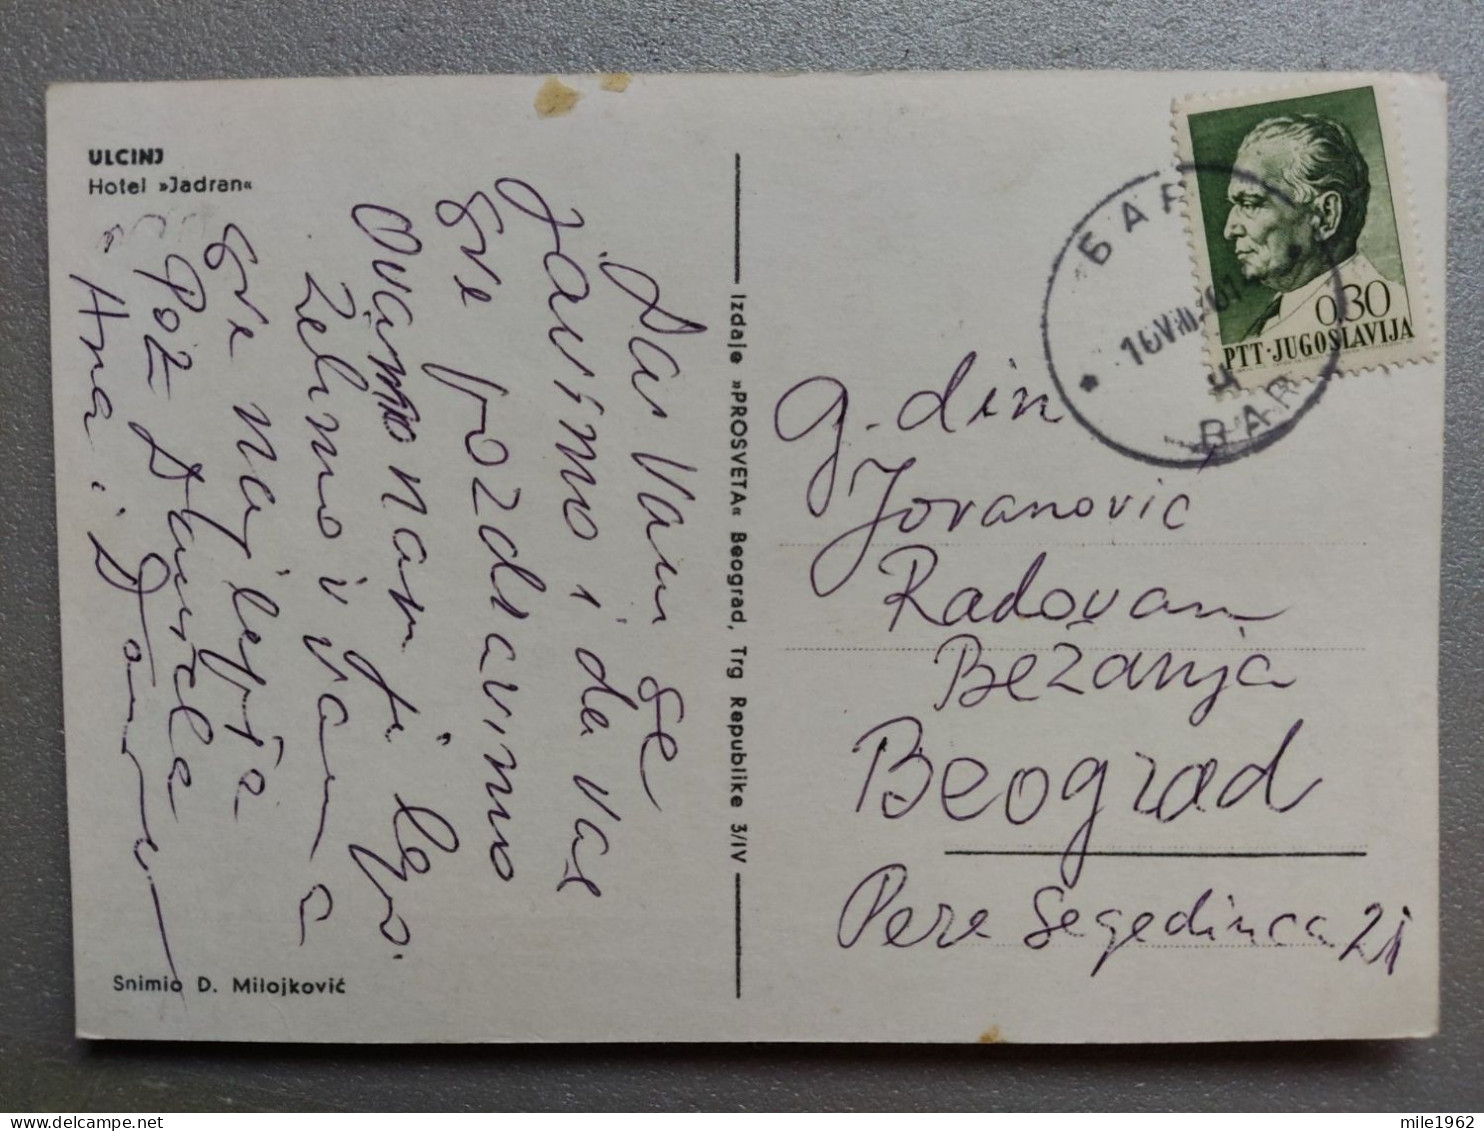 ULCINJ
Hotel »Jadran«
Da Vam se
javimo i da vas
sve pozdravimo
Ovamo nam je lepo.
Želimo i vama
sve najlepša
Poz Danica
Ana i
Snimio D. Milojković
Izdaje »PROSVETA« Beograd, Trg Republike 3/IV
БАР
16.VIII.
BAR
0.30
PTT·JUGOSLAVIJA
g. din
Jovanović
Radovan
Bežanja
Beograd
Pere Segedinca 21
mile1962